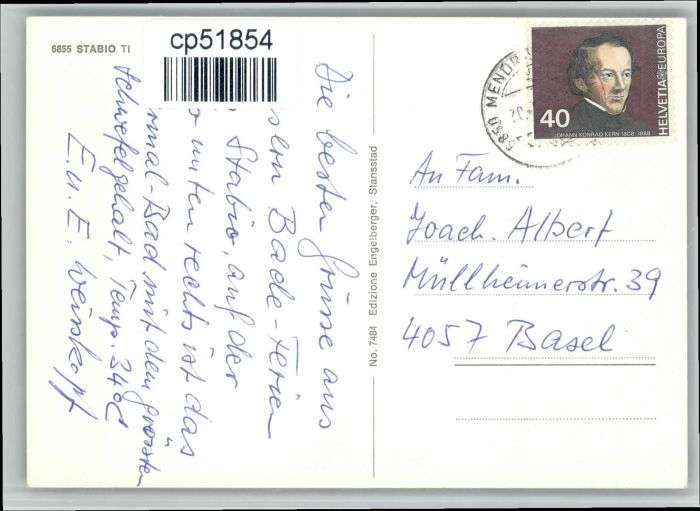 6855 STABIO TI
cp51854
Die besten Grüsse aus
Bade-Ferien
Stabio, auf der
unten rechts ist das
rmal-Bad mit dem grössten
Schwefelgehalt, Temp. 34°C
E. u. E. Weisskopf
No. 7484 Edizione Engelberger, Stansstad
6850 MENDR
40
HELVETIA EUROPA
JOHANN KONRAD KERN 1808-1888
An Fam.
Joach. Albert
Müllheimerstr. 39
4057 Basel